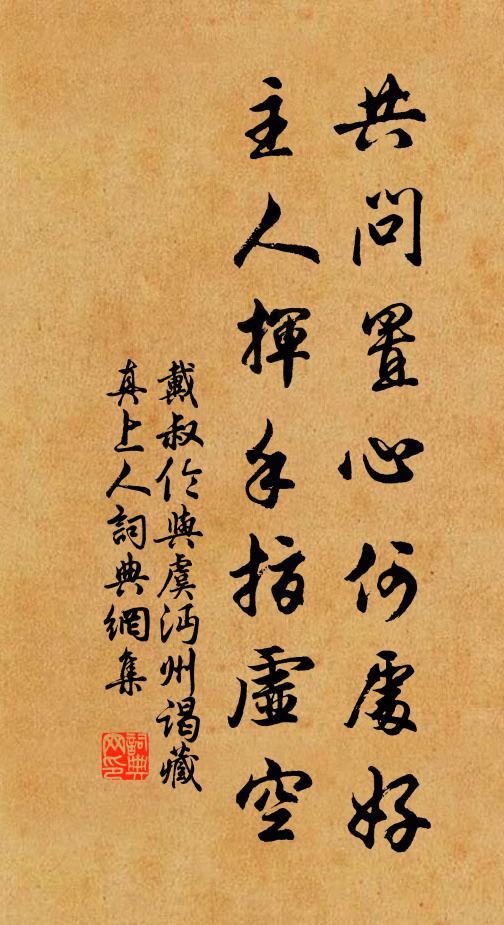 共問置心何處好
主人揮手指虛空
戴叔伦與虞沔州谒藏
真上人詞典網集
詞典網印